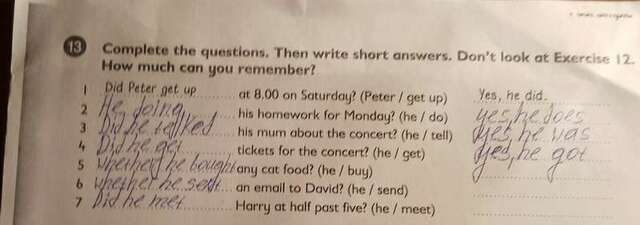 13 Complete the questions. Then write short answers. Don't look at Exercise 12.
How much can you remember?
1 Did Peter get up at 8.00 on Saturday? (Peter / get up) Yes, he did.
2 He doing his homework for Monday? (he / do) yes, he does
3 Did he talked his mum about the concert? (he / tell) yes, he was
4 Did he get tickets for the concert? (he / get) yes, he got
5 whether he bought any cat food? (he / buy)
6 whether he sent an email to David? (he / send)
7 Did he met Harry at half past five? (he / meet)